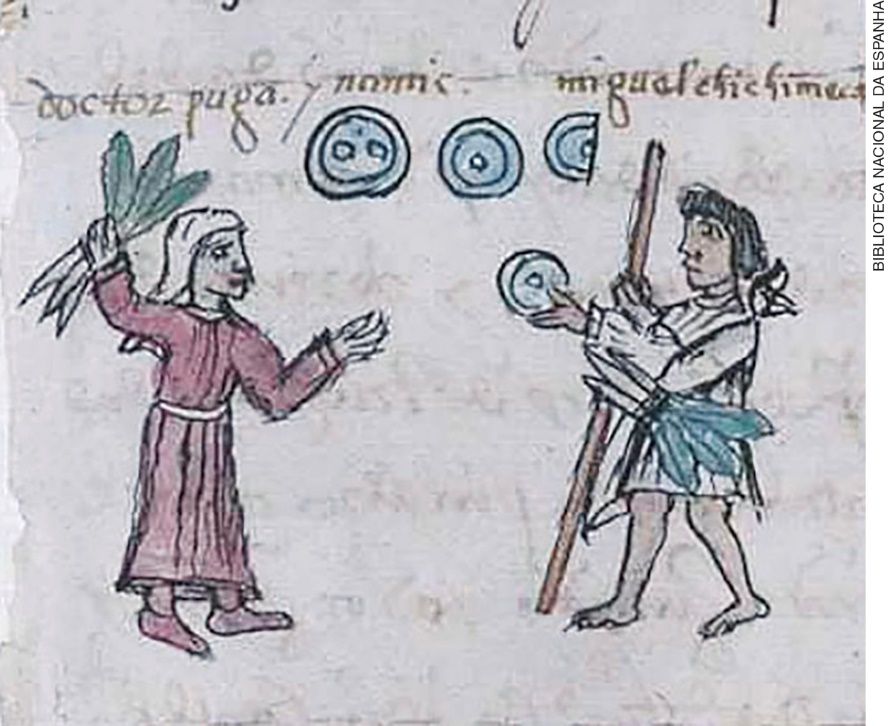 doctor puga. y namic. miguel chichimeca
BIBLIOTECA NACIONAL DA ESPANHA